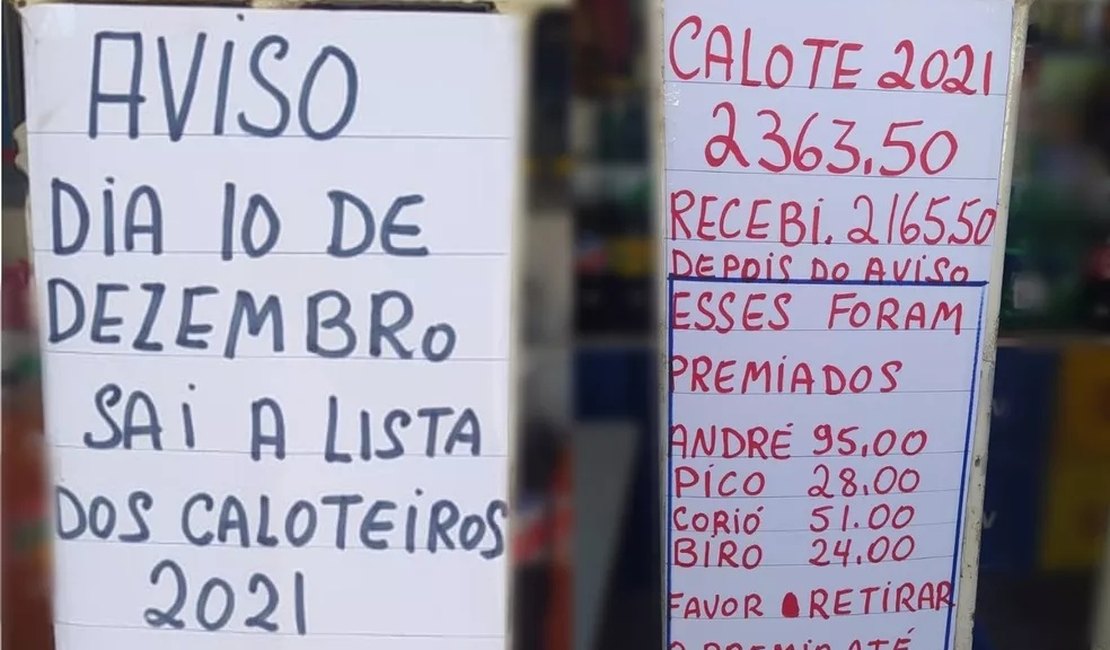 AVISO
DIA 10 DE
DEZEMBRO
SAI A LISTA
DOS CALOTEIROS
2021
CALOTE 2021
2363,50
RECEBI. 2165,50
DEPOIS DO AVISO
ESSES FORAM
PREMIADOS
ANDRÉ 95,00
PICO 28,00
CORIÓ 51.00
BIRO 24,00
FAVOR RETIRAR
O PREMIO ATÉ